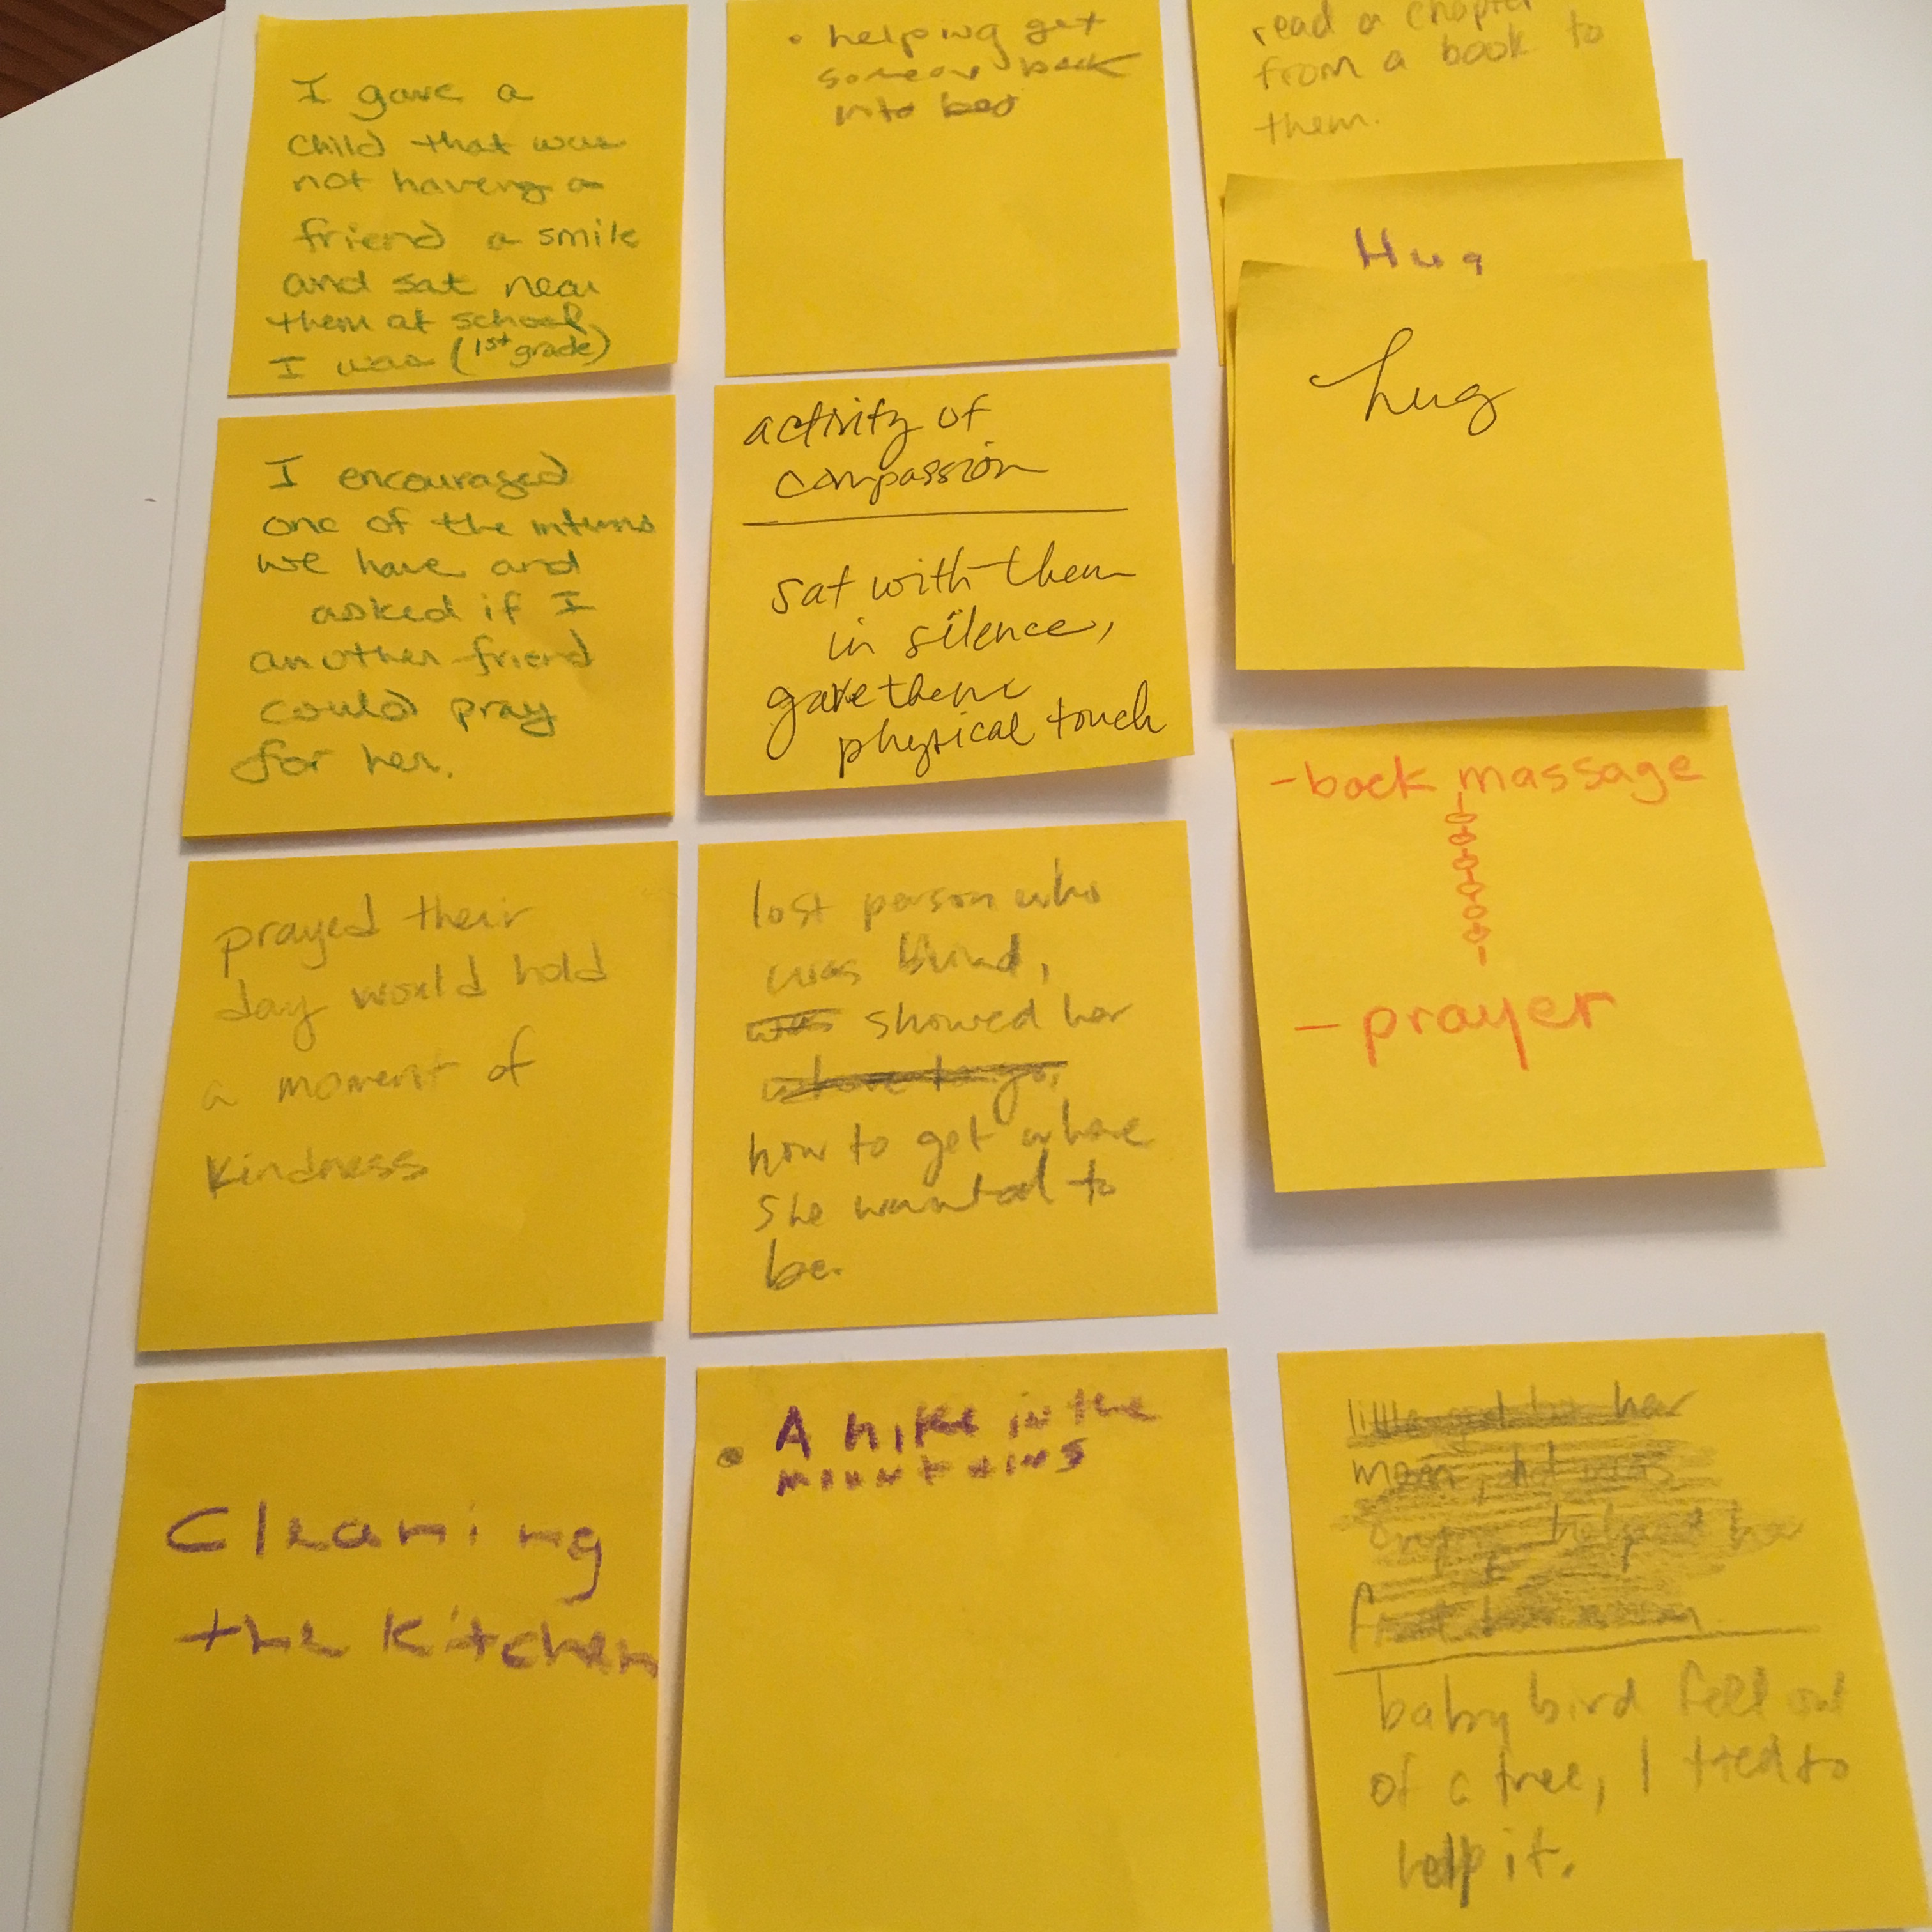 I gave a
child that was
not having a
friend a smile
and sat near
them at school,
I was (1st grade)
• helping get
someone back
into bed
read a chapter
from a book to
them.
Hug
hug
I encouraged
one of the interns
we have and
asked if I
another friend
could pray
for her.
activity of
compassion
sat with them
in silence,
gave them
physical touch
-back massage
-prayer
prayed their
day would hold
a moment of
kindness
lost person who
was blind,
was showed her
where to go,
how to get where
she wanted to
be.
Cleaning
the Kitchen
• A hike in the
mountains
her
mom,
helped her
baby bird fell out
of a tree, I tried to
help it.